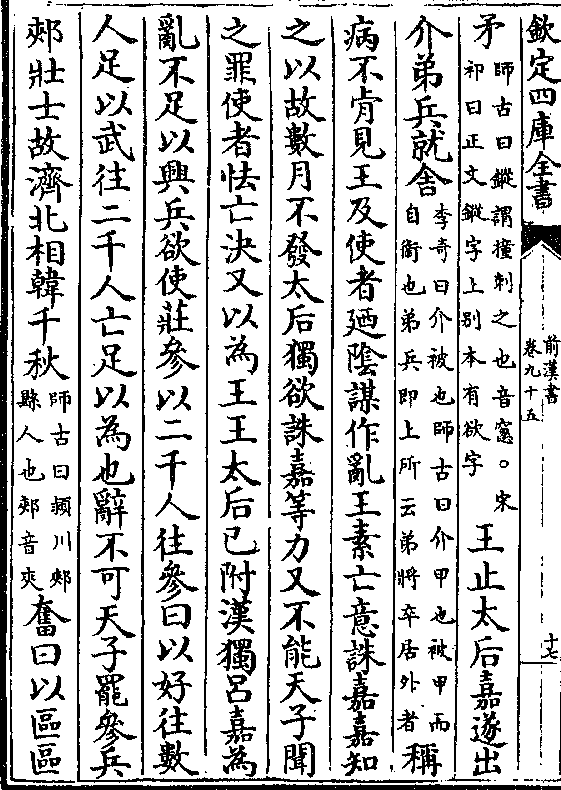 欽定四庫全書
前漢書
卷九十五
十七
矛師古曰鏦謂撞刺之也音窻○宋
祁曰正文鏦字上別本有欲字王止太后嘉遂出
介弟兵就舍李奇曰介被也師古曰介甲也被甲而
自衛也弟兵即上所云弟將卒居外者稱
病不肯見王及使者廼隂謀作亂王素亡意誅嘉嘉知
之以故數月不發太后獨欲誅嘉等力又不能天子聞
之罪使者怯亡決又以為王王太后已附漢獨呂嘉為
亂不足以興兵欲使莊參以二千人往參曰以好往數
人足以武往二千人亡足以為也辭不可天子罷參兵
郟壯士故濟北相韓千秋師古曰潁川郟
縣人也郟音夾奮曰以區區